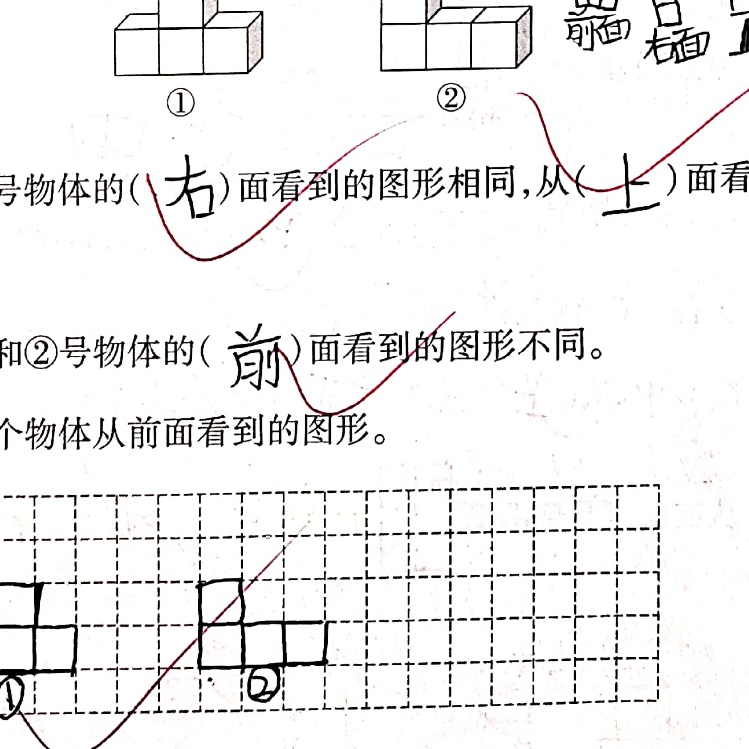 前面
右面
① ②
号物体的(右)面看到的图形相同,从(上)面看
和②号物体的(前)面看到的图形不同。
个物体从前面看到的图形。
① ②